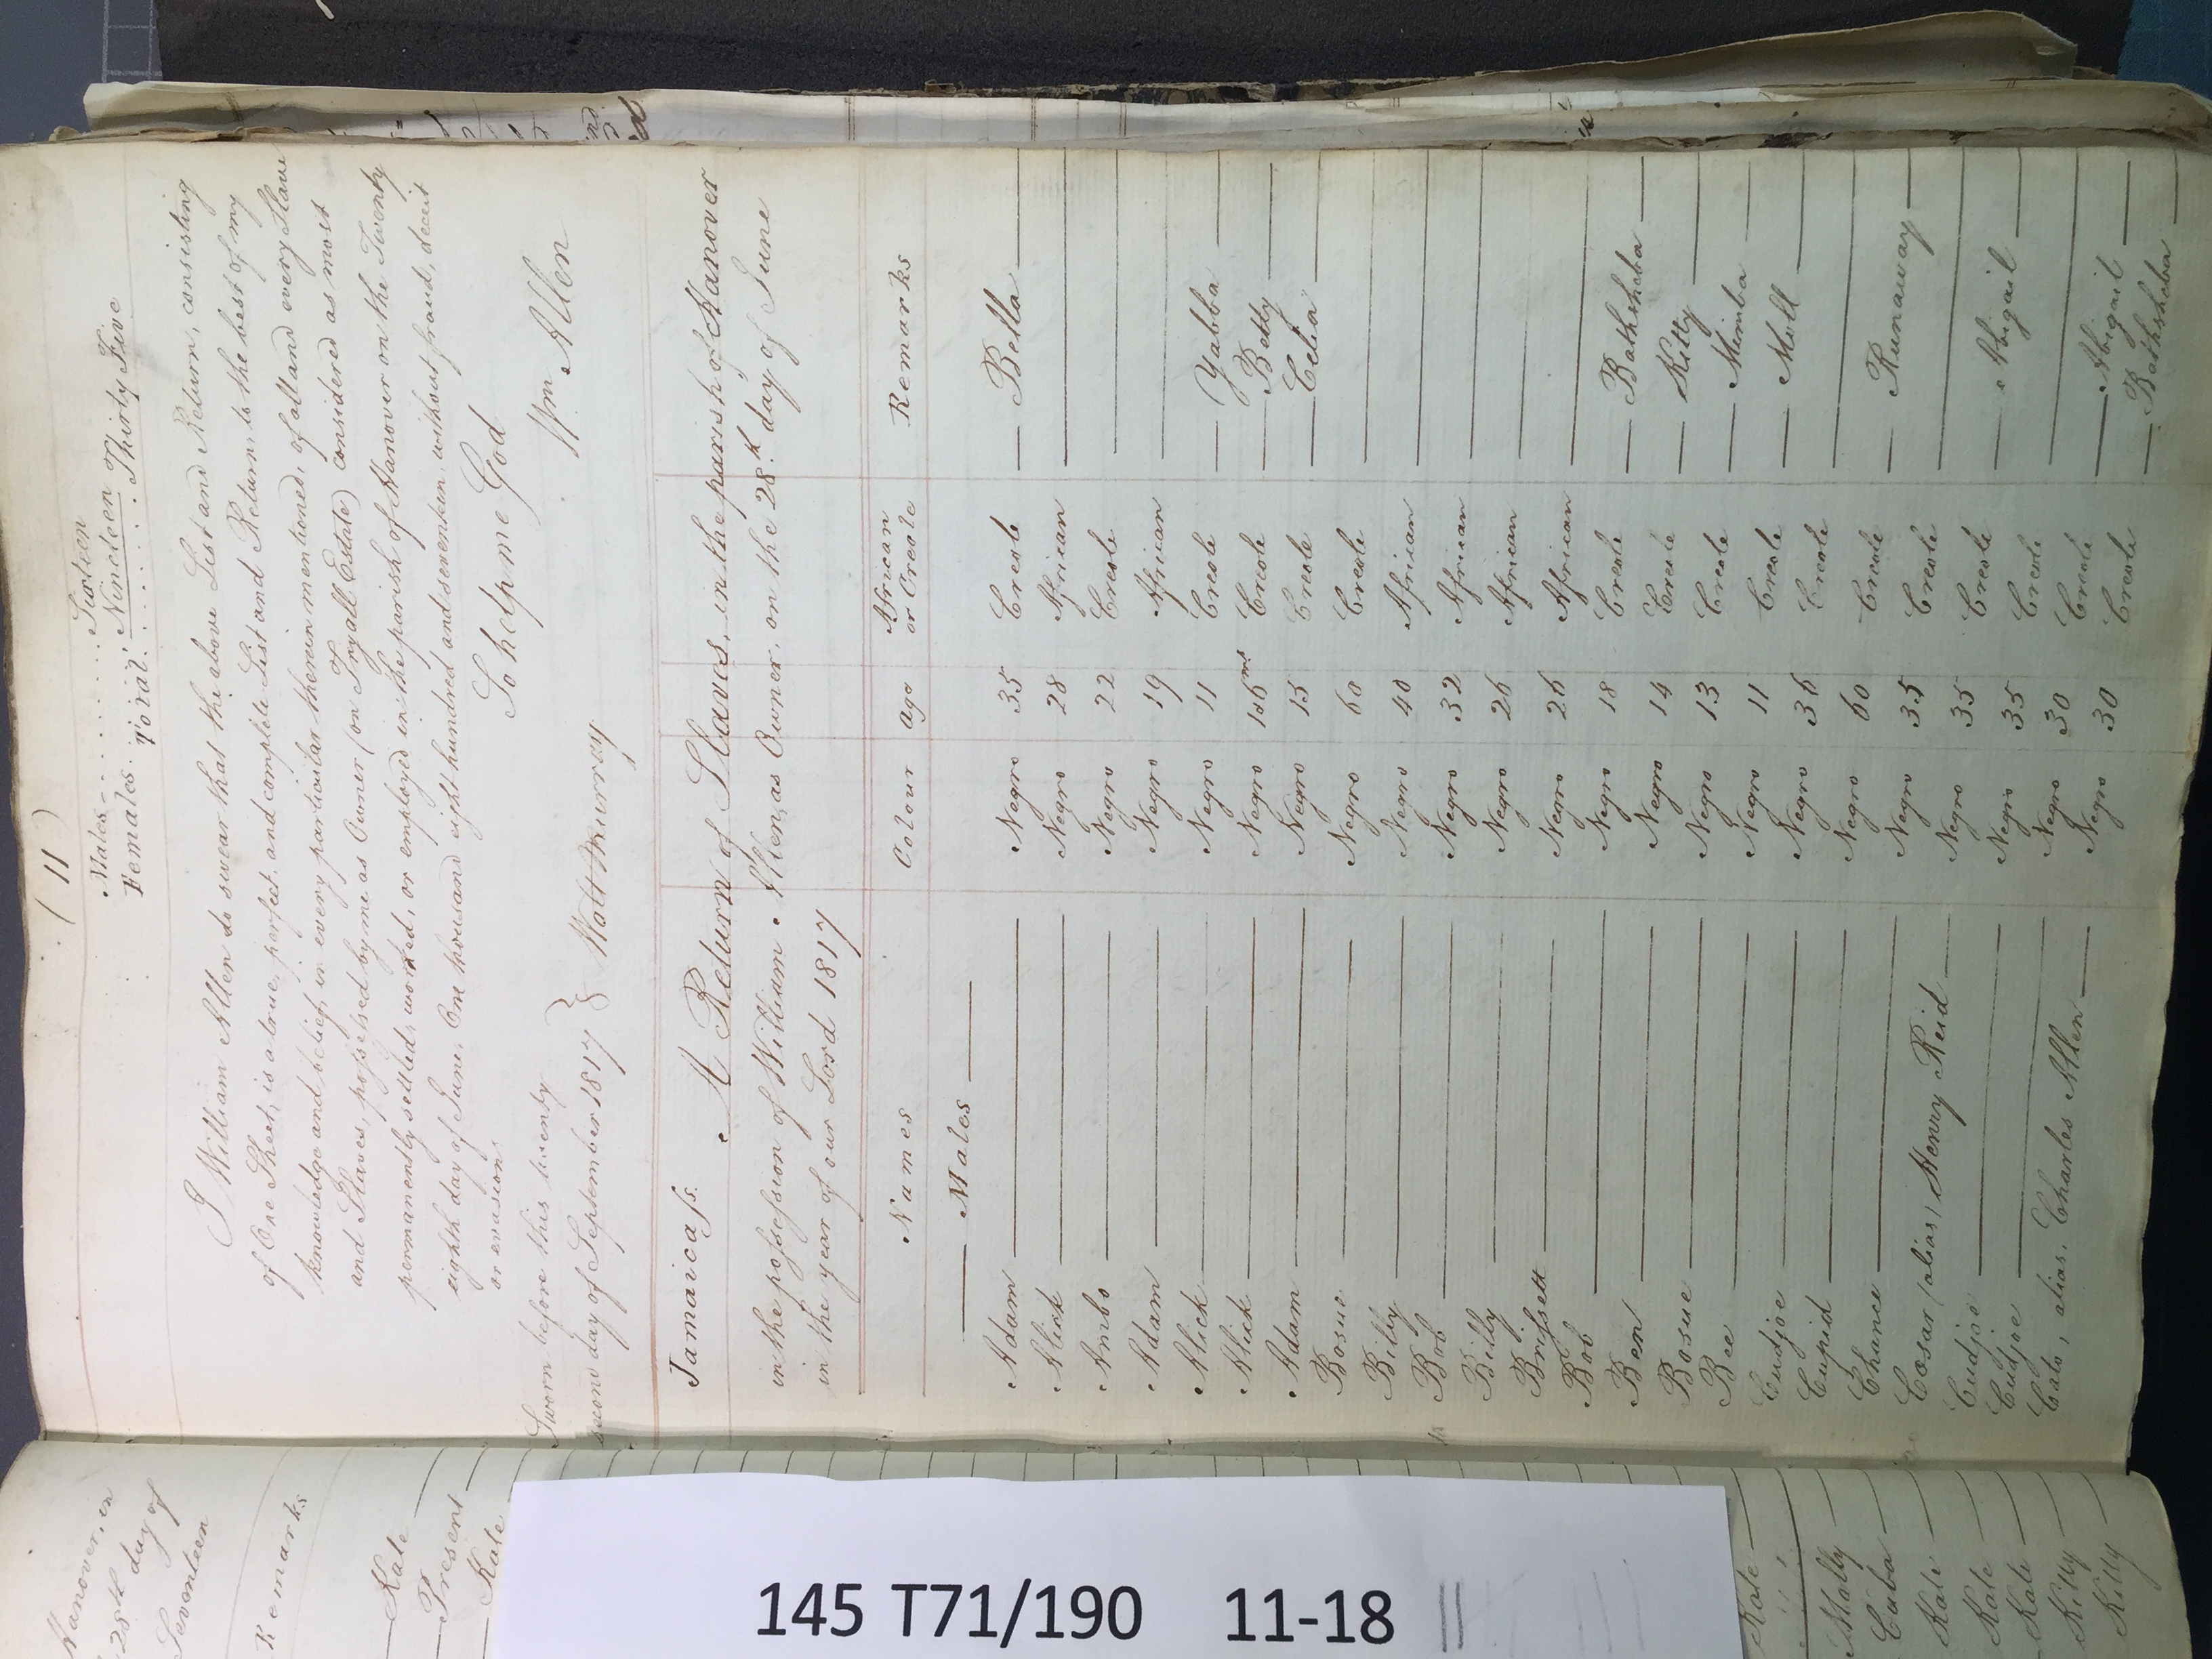 ( 11 )
Males Sixteen
Females Nineteen
Total Thirty Five
I William Allen do swear that the above List and Return, consisting
of One Sheet, is a true, perfect, and complete List and Return to the best of my
knowledge and belief, in every particular therein mentioned, of all and every Slave
and Slaves, possessed by me as Owner (on Tryall Estate) considered as most
permanently settled, worked, or employed in the parish of Hanover on the Twenty
eighth day of June, One thousand eight hundred and seventeen, without fraud, deceit
or evasion.
So help me God
Wm Allen
Sworn before this twenty
second day of September 1817 } Walt Murray
Jamaica ss. A Return of Slaves, in the parish of Hanover
in the possession of William Allen, as Owner, on the 28th day of June
in the year of our Lord 1817
Names Colour Age African or Creole Remarks
Males
Adam Negro 35 Creole Bella
Alick Negro 28 African
Ambo Negro 22 Creole
Adam Negro 19 African
Alick Negro 11 Creole Yabba
Alick Negro Creole Betty
Adam Negro 15 Creole Celia
Bosue Negro 60 Creole
Billy Negro 40 African
Bob Negro 32 African
Billy Negro 26 African
Brissett Negro 26 African
Bob Negro 18 Creole Bathsheba
Ben Negro 14 Creole Kitty
Bosue Negro 13 Creole Mimba
Bee Negro 11 Creole Moll
Cudjoe Negro 36 Creole
Cupid Negro 60 Creole Runaway
Chance Negro 35 Creole
Cesar (alias) Henry Reid Negro 35 Creole Abigail
Cudjoe Negro 35 Creole
Cudjoe Negro 30 Creole Abigail
Cato, alias, Charles Allen Negro 30 Creole Bathsheba
Hanover, in
28th day of
Seventeen
Remarks
Kate
Present
Kate
Kate
Molly
Cuba
Kate
Kate
Kate
Kitty
Kitty
145 T71/190 11-18